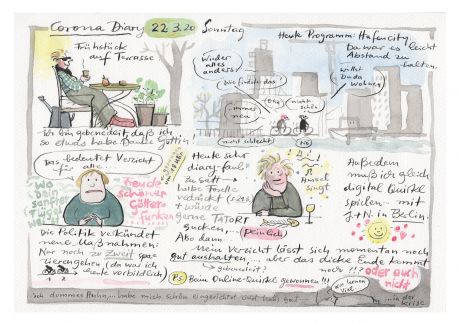 Corona Diary 22.3.20 Sonntag
Frühstück
auf Terrasse
Heute Programm: Hafencity.
Da war es leicht
Abstand zu
halten.
Wieder
alles
anders!
Wie findste das?
Willst
Du da
wohnen
immer
neu
Oka
nicht
schön
nicht schlecht
Ich bin gebenedeit, daß ich
so etwas habe. Danke Göttin!
Das bedeutet Verzicht
für alle...
Wo
Dein
sanfter
Flügel
freude
schöner
Götter-
funken
Die Politik verkündet
neue Maßnahmen:
Nur noch zu zweit spa-
zierengehen (da war ich
heute vorbildlich)
Heute sehr
diary-faul
Zu Saft
habe Torte
verdrückt
+ würde
gerne TATORT
gucken,
peinlich
Also dann
Amsel
singt
Außerdem
muß ich gleich
digital Quirkle
spielen... mit
J+N in Berlin.
Mein Verzicht lässt sich momentan noch
gut aushalten,... aber das dicke Ende kommt
gebenedeit?
noch !!?
oder auch
nicht
PS Beim Online-Quirkle gewonnen!!!
Ich dummes Huhn,... habe mich schön eingerichtet und hab's gut
wir lernen
viel
...in der
Krise